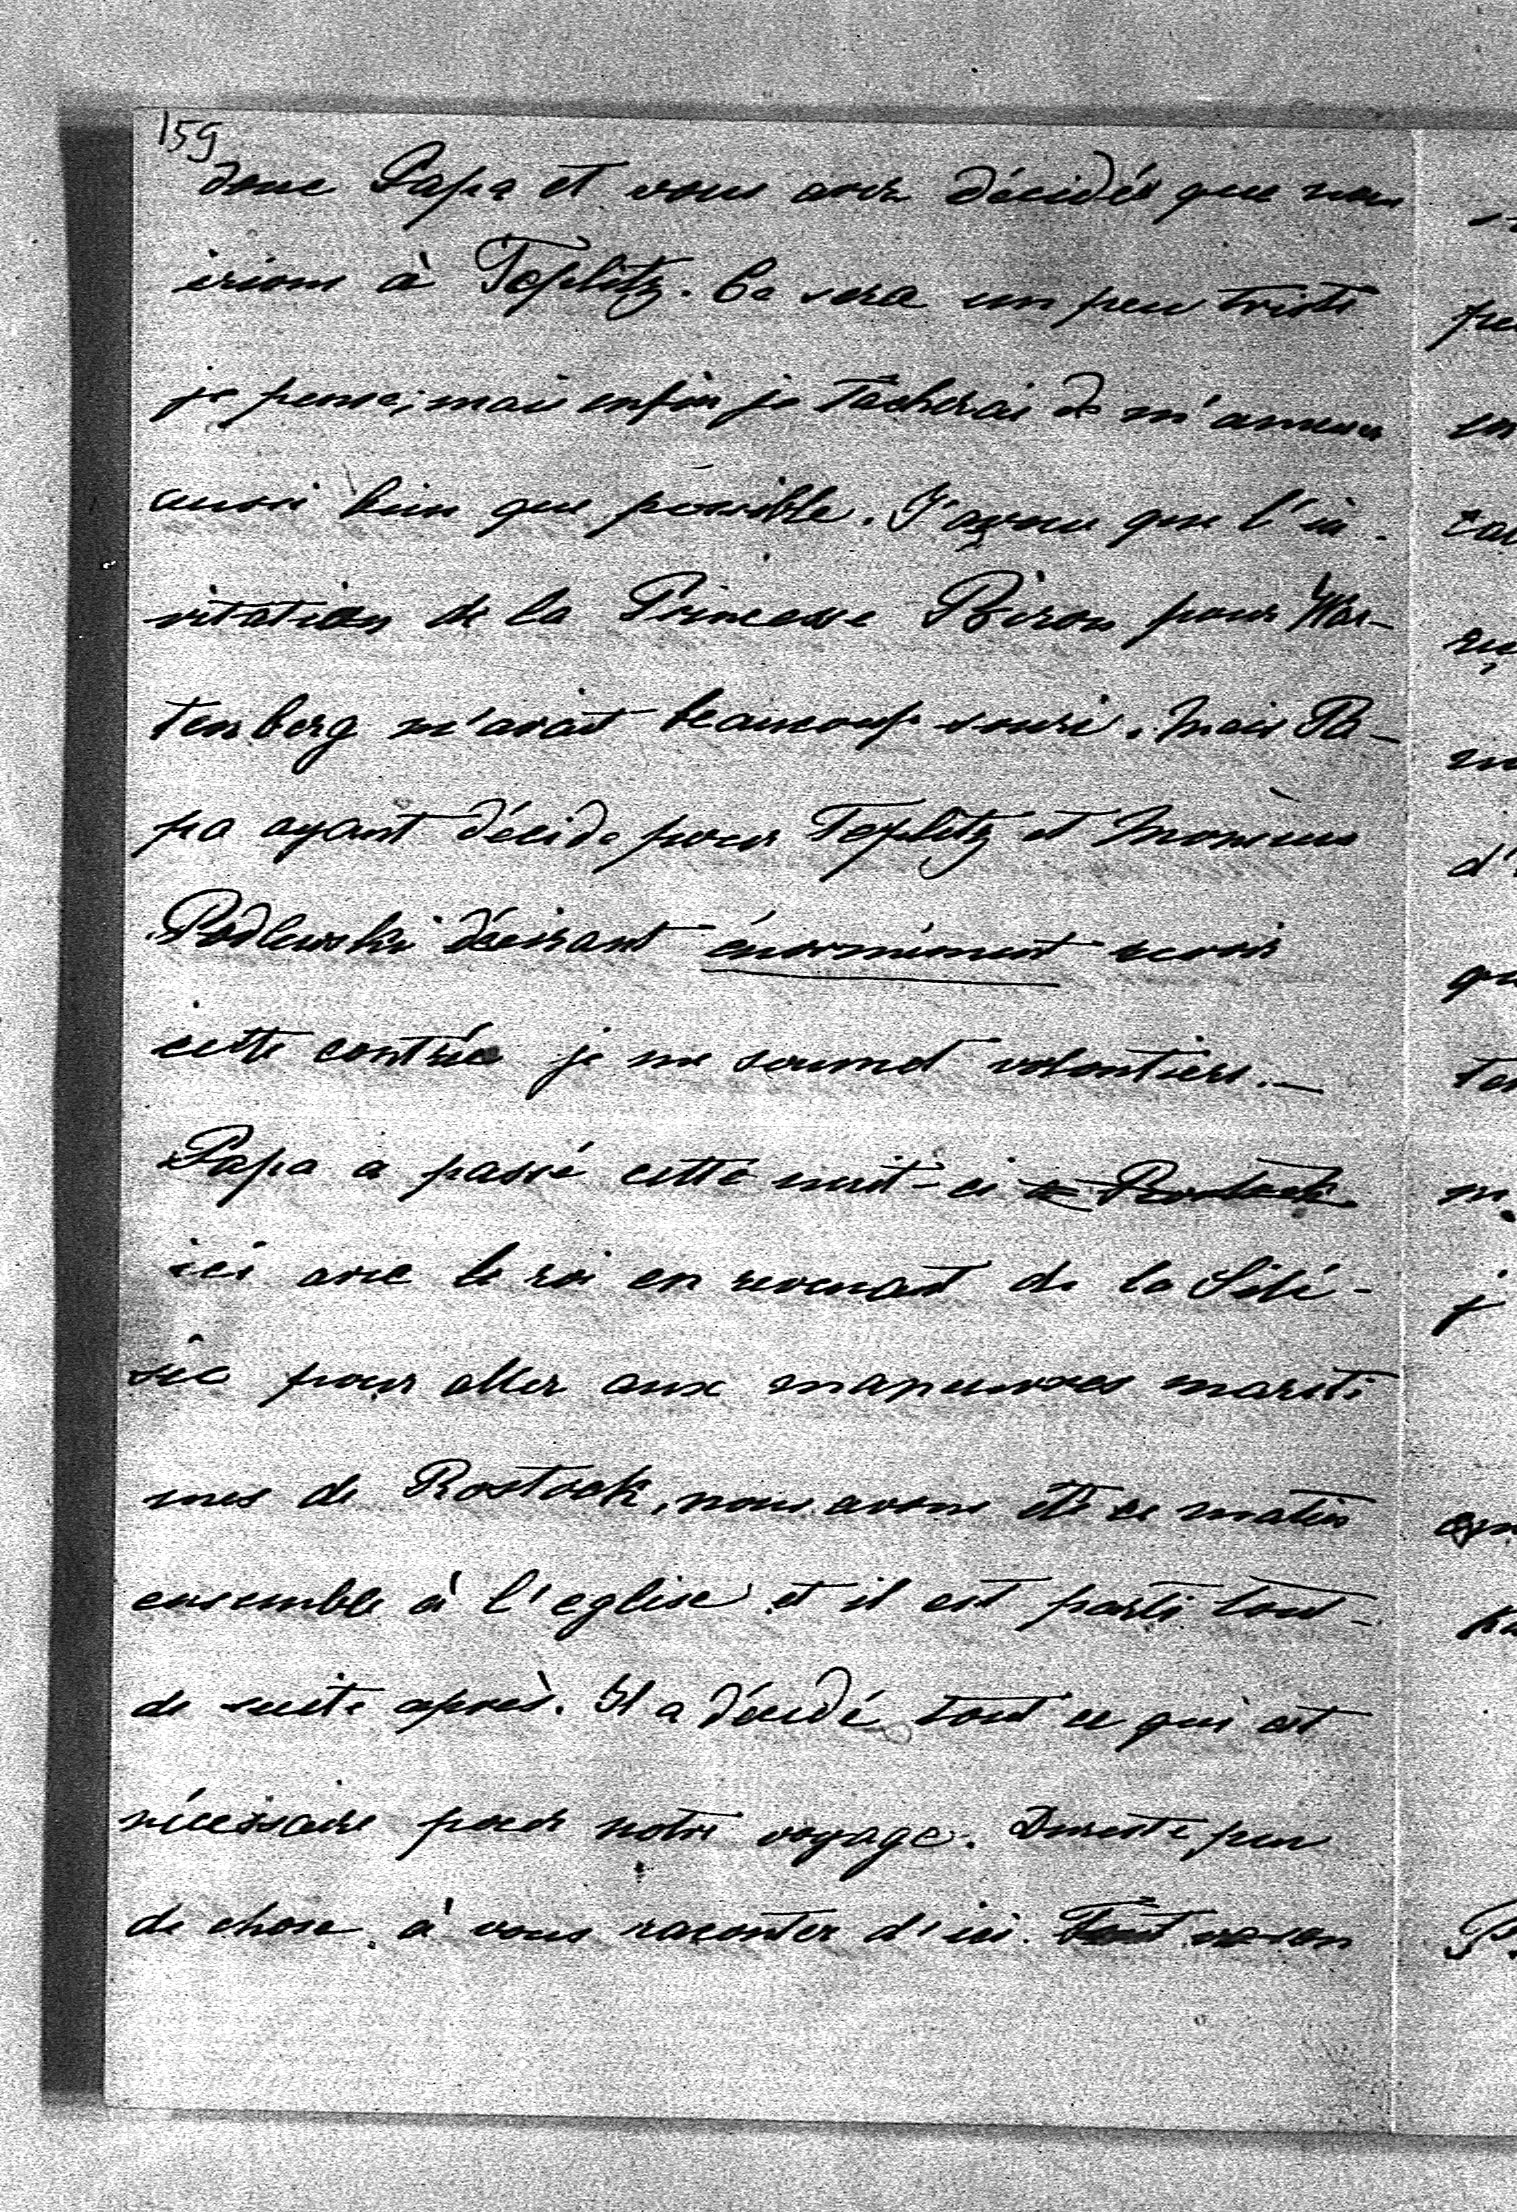 159
donc Papa et vous avez décidés que nous
irions à Teplitz. Ce sera un peu triste
je pense, mais enfin je tâcherai de m'amuser
aussi bien que possible. J'avoue que l'in-
vitation de la Princesse Biron pour War-
tenberg m'avait beaucoup souri. Mais Pa-
pa ayant décidé pour Teplitz et Monsieur
Podlewski désirant énormément revoir
cette contrée je me soumet volontiers. —
Papa a passé cette nuit-ci a Rostock
ici avec le roi en revenant de la Silé-
sie pour aller aux manoeuvres mariti
mes de Rostock, nous avons été ce matin
ensemble à l'eglise et il est parti tout-
de suite après. Il a décidé tout ce qui est
nécessaire pour notre voyage. Dureste peu
de chose à vous raconter d'ici. Tout va son